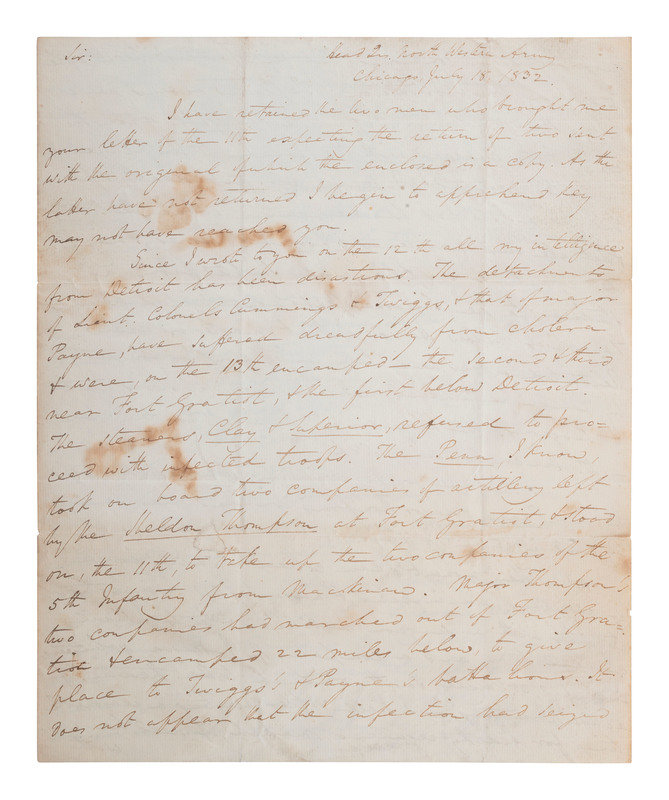 Sir:
Head Qrs North Western Army
Chicago, July 18, 1832.
I have retained the two men who brought me
your letter of the 11th expecting the return of two sent
with the original of which the enclosed is a copy. As the
latter have not returned I begin to apprehend they
may not have reached you.
Since I wrote to you on the 12th all my intelligence
from Detroit has been disastrous. The detachments
of Lieut. Colonels Cummings & Twiggs, & that of major
Payne, have suffered dreadfully from cholera
& were, on the 13th encamped — the second & third
near Fort Gratiot, & the first below Detroit.
The steamers, Clay & Superior, refused to pro-
ceed with infected troops. The Penn, I know,
took on board two companies of artillery left
by the Sheldon Thompson at Fort Gratiot, & stood
on, the 11th, to take up the two companies of the
5th Infantry from Mackinac. Major Thompson's
two companies had marched out of Fort Gra-
tiot & encamped 22 miles below, to give
place to Twiggs's & Payne's battalions. It
does not appear that the infection had seized